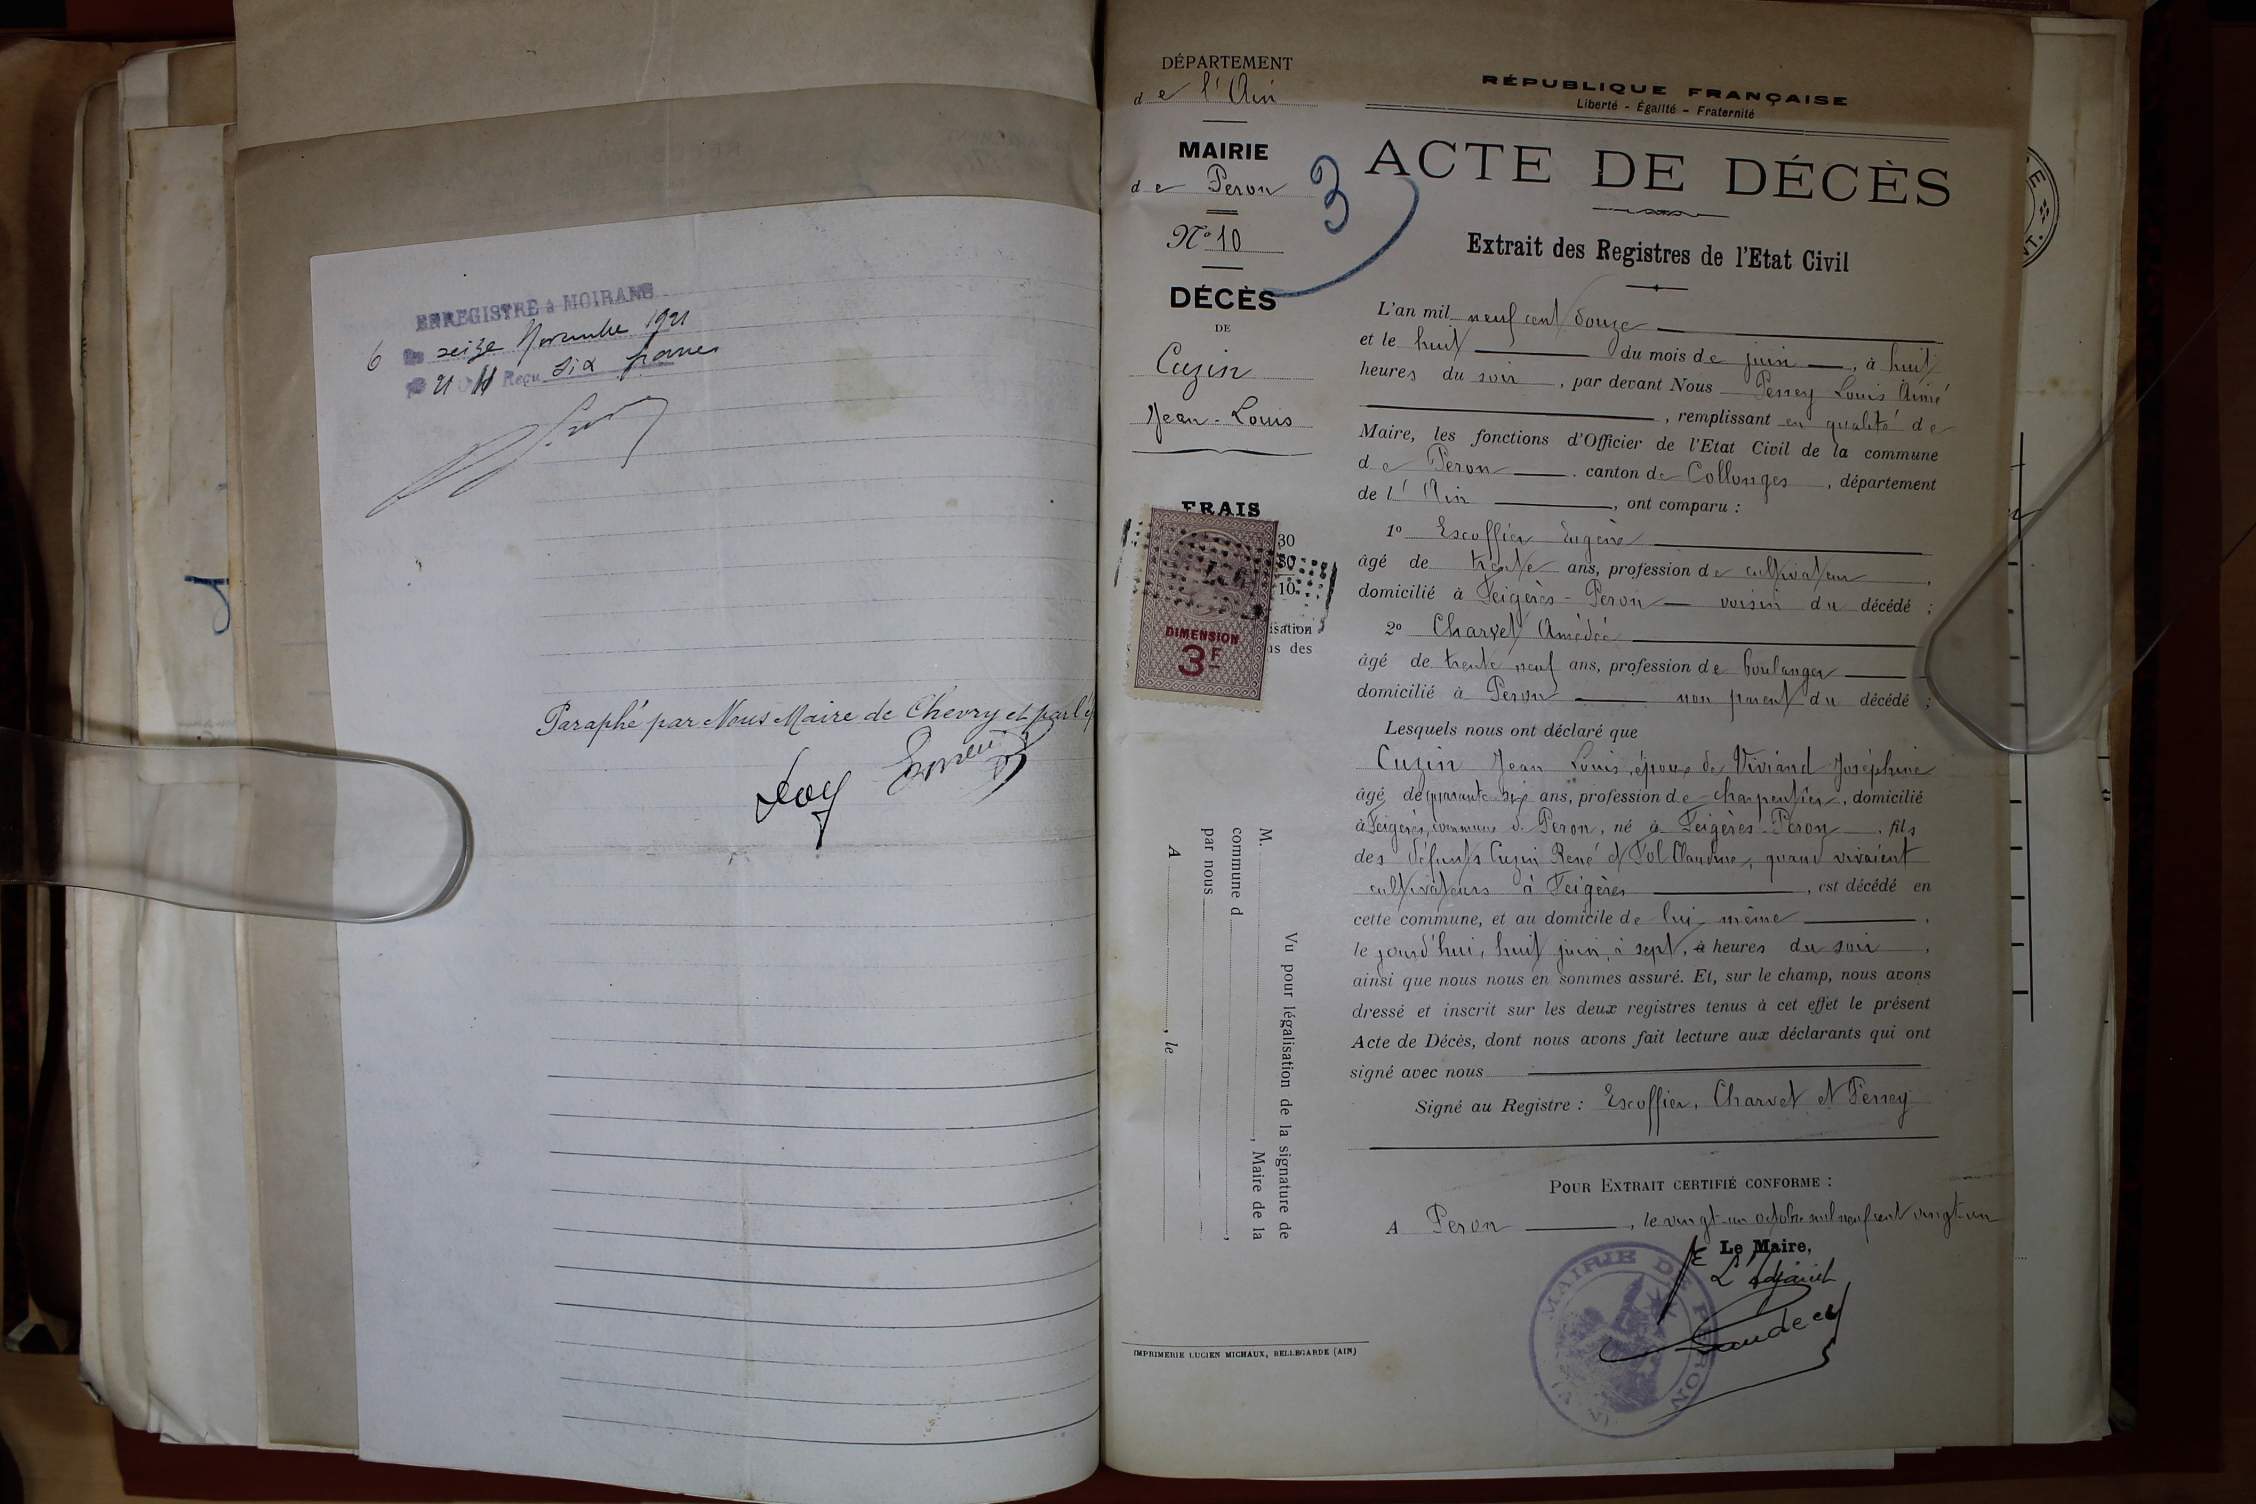 ENREGISTRÉ à MOIRANS
6 le seize Novembre 1921
Reçu six francs
Paraphé par Nous Maire de Chevry et par
DÉPARTEMENT
de l'Ain
MAIRIE
de Peron
N° 10
DÉCÈS
DE
Cuzin
Jean-Louis
FRAIS
30
80
10
isation
ns des
DIMENSION
3F
Vu pour légalisation de la signature de
M. , Maire de la
commune d ,
par nous
A , le
IMPRIMERIE LUCIEN MICHAUX, BELLEGARDE (AIN)
3
RÉPUBLIQUE FRANÇAISE
Liberté - Égalité - Fraternité
ACTE DE DÉCÈS
Extrait des Registres de l'Etat Civil
L'an mil neuf cent douze
et le huit du mois de juin, à huit
heures du soir, par devant Nous Perrey Louis Aimé
, remplissant en qualité de
Maire, les fonctions d'Officier de l'Etat Civil de la commune
de Peron, canton de Collonges, département
de l'Ain, ont comparu :
1° Escoffier Eugène
âgé de trente ans, profession de cultivateur,
domicilié à Feigères-Peron voisin du décédé ;
2° Charvet Amédée
âgé de trente neuf ans, profession de boulanger
domicilié à Peron non parent du décédé ;
Lesquels nous ont déclaré que
Cuzin Jean Louis, époux de Viviand Joséphine
âgé de quarante six ans, profession de charpentier, domicilié
à Feigères, commune de Peron, né à Feigères-Peron, fils
des défunts Cuzin René et Fol Claudine, quand vivaient
cultivateurs à Feigères, est décédé en
cette commune, et au domicile de lui-même,
le jourd'hui, huit juin, à sept, à heures du soir,
ainsi que nous nous en sommes assuré. Et, sur le champ, nous avons
dressé et inscrit sur les deux registres tenus à cet effet le présent
Acte de Décès, dont nous avons fait lecture aux déclarants qui ont
signé avec nous
Signé au Registre : Escoffier, Charvet et Perrey
POUR EXTRAIT CERTIFIÉ CONFORME :
A Peron, le vingt-un octobre mil neuf cent vingt-un
Le Maire,
L'Adjoint
MAIRIE DE PERON
(AIN)